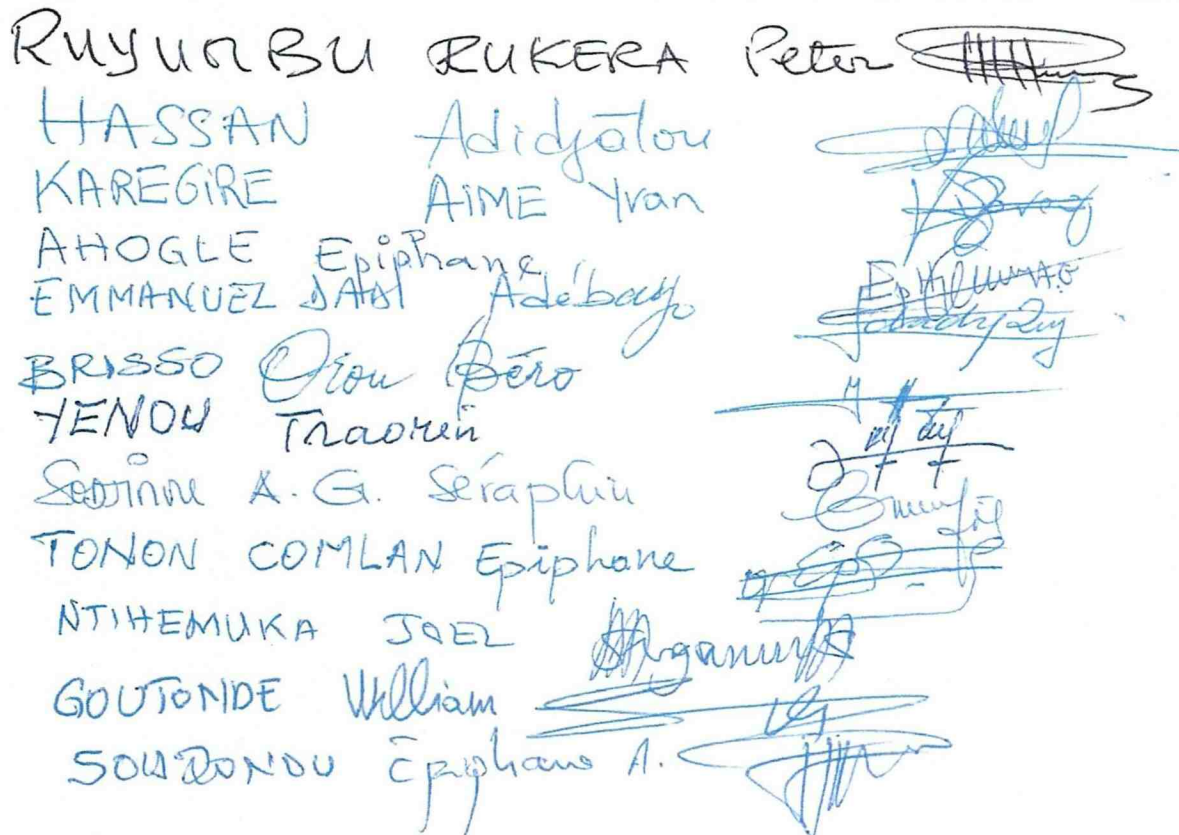 RUYUMBU RUKERA Peter
HASSAN Adidjatou
KAREGIRE AIME Yvan
AHOGLE Epiphane
EMMANUEL DADI Adébayo
BRISSO Orou Béro
YENOU Traoren
A. G. Séraphin
TONON COMLAN Epiphane
NTIHEMUKA JOEL
GOUTONDE William
Epiphane A.